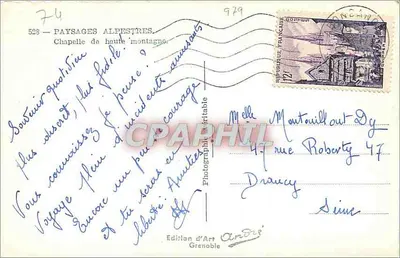 74
979
528 — PAYSAGES ALPESTRES.
Chapelle de haute montagne.
Souvenir quotidien
plus discret, plus fidèle!
Vous connaissez, je pense!
Voyage plein d'incidents amusants
Encore un peu de courage
et tu seras en
liberté! Amitiés
CPARHIL
Photographie Véritable
Melle Monteuillout Dy
47 rue Roberty 47
Drancy
Seine
Edition d'Art
Grenoble
André
12F